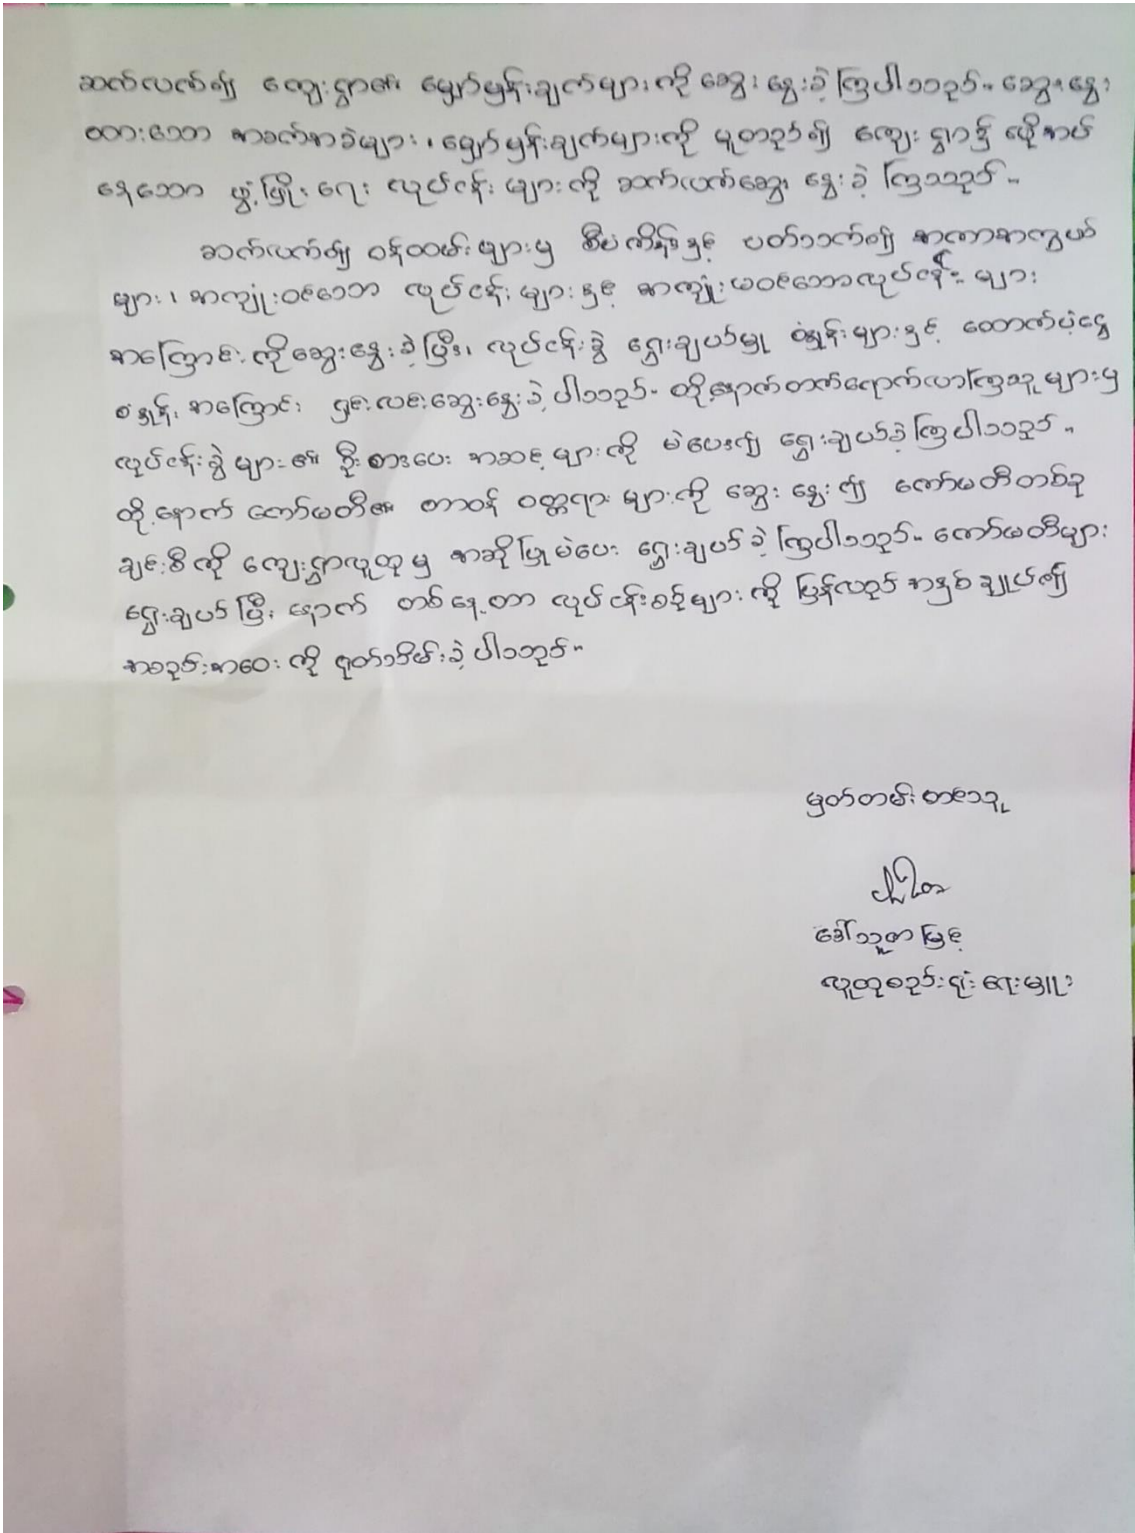 ဆက်လက်၍ ကျေးရွာ၏ မျှော်မှန်းချက်များကို ဆွေးနွေးခဲ့ကြပါသည်။ ဆွေးနွေး
ထားသော အခက်အခဲများ၊ မျှော်မှန်းချက်များကို မူတည်၍ ကျေးရွာ၌ လိုအပ်
နေသော ဖွံ့ဖြိုးရေး လုပ်ငန်းများကို ဆက်လက်ဆွေးနွေးခဲ့ကြသည်။
ဆက်လက်၍ ဝန်ထမ်းများမှ စီမံကိန်းနှင့် ပတ်သက်၍ အကာအကွယ်
များ၊ အကျုံးဝင်သော လုပ်ငန်းများနှင့် အကျုံးမဝင်သောလုပ်ငန်းများ
အကြောင်းကိုဆွေးနွေးခဲ့ပြီး၊ လုပ်ငန်းခွဲ ရွေးချယ်မှု စံနှုန်းများနှင့် ထောက်ပံ့ငွေ
စံနှုန်းအကြောင်း ရှင်းလင်းဆွေးနွေးခဲ့ပါသည်။ ထို့နောက်တက်ရောက်လာကြသူများမှ
လုပ်ငန်းခွဲများ၏ ဦးစားပေး အဆင့်များကို မဲပေး၍ ရွေးချယ်ခဲ့ကြပါသည်။
ထို့နောက် ကော်မတီ၏ တာဝန် ဝတ္တရားများကို ဆွေးနွေး၍ ကော်မတီတစ်ခု
ချင်းစီကို ကျေးရွာလူထုမှ အဆိုပြုမဲပေး ရွေးချယ်ခဲ့ကြပါသည်။ ကော်မတီများ
ရွေးချယ်ပြီးနောက် တစ်နေ့တာ လုပ်ငန်းစဉ်များကို ပြန်လည် အနှစ်ချုပ်၍
အစည်းအဝေးကို ရုတ်သိမ်းခဲ့ပါသည်။
မှတ်တမ်းတင်သူ
ဒေါ်သူဇာမြင့်
လူထုစည်းရုံးရေးမှူး